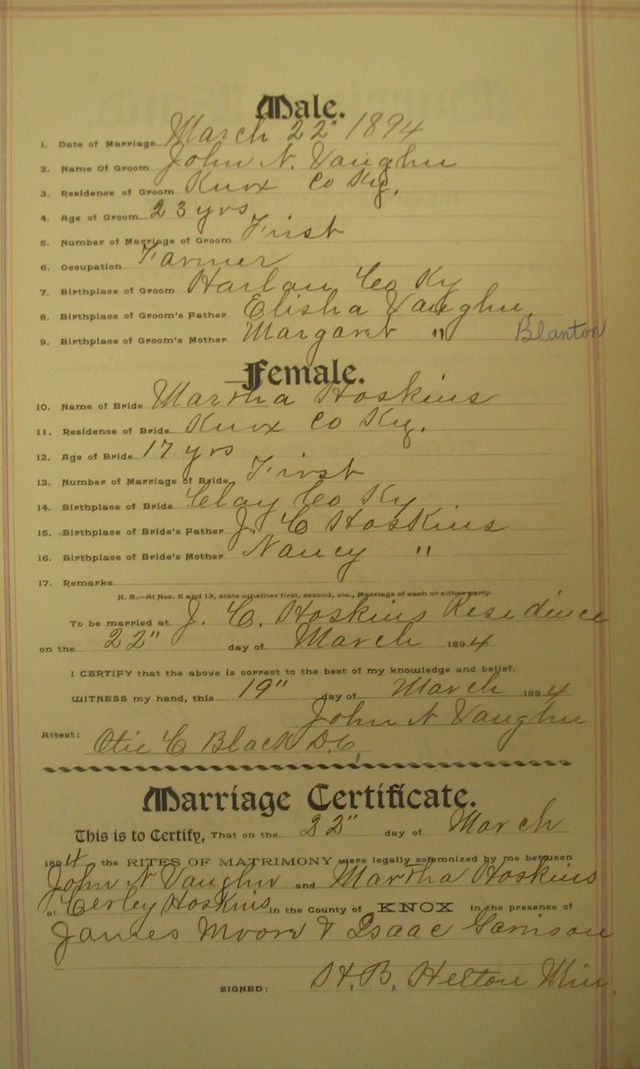 Male.
1. Date of Marriage March 22" 1894
2. Name Of Groom John N. Vaughn
3. Residence of Groom Knox Co Ky.
4. Age of Groom 23 yrs
5. Number of Marriage of Groom First
6. Occupation Farmer
7. Birthplace of Groom Harlan Co Ky
8. Birthplace of Groom's Father Elisha Vaughn
9. Birthplace of Groom's Mother Margaret " Blanton
Female.
10. Name of Bride Martha Hoskins
11. Residence of Bride Knox Co Ky.
12. Age of Bride 17 yrs
13. Number of Marriage of Bride First
14. Birthplace of Bride Clay Co Ky
15. Birthplace of Bride's Father J. C Hoskins
16. Birthplace of Bride's Mother Nancy "
17. Remarks
N. B.—At Nos. 5 and 13, state whether first, second, etc., Marriage of each or either party.
To be married at J. C. Hoskins Residence
on the 22" day of March 1894
I CERTIFY that the above is correct to the best of my knowledge and belief.
WITNESS my hand, this 19" day of March 1894
John N Vaughn
Attest: Otie C Black D.C.
Marriage Certificate.
This is to Certify, That on the 22" day of March
1894 the RITES OF MATRIMONY were legally solemnized by me between
John N Vaughn and Martha Hoskins
at Cerley Hoskins in the County of KNOX in the presence of
James Moore & Isaac Garrison
SIGNED: H. B. Helton Min.